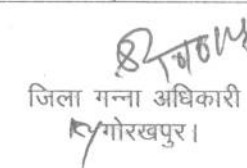 जिला गन्ना अधिकारी
गोरखपुर।